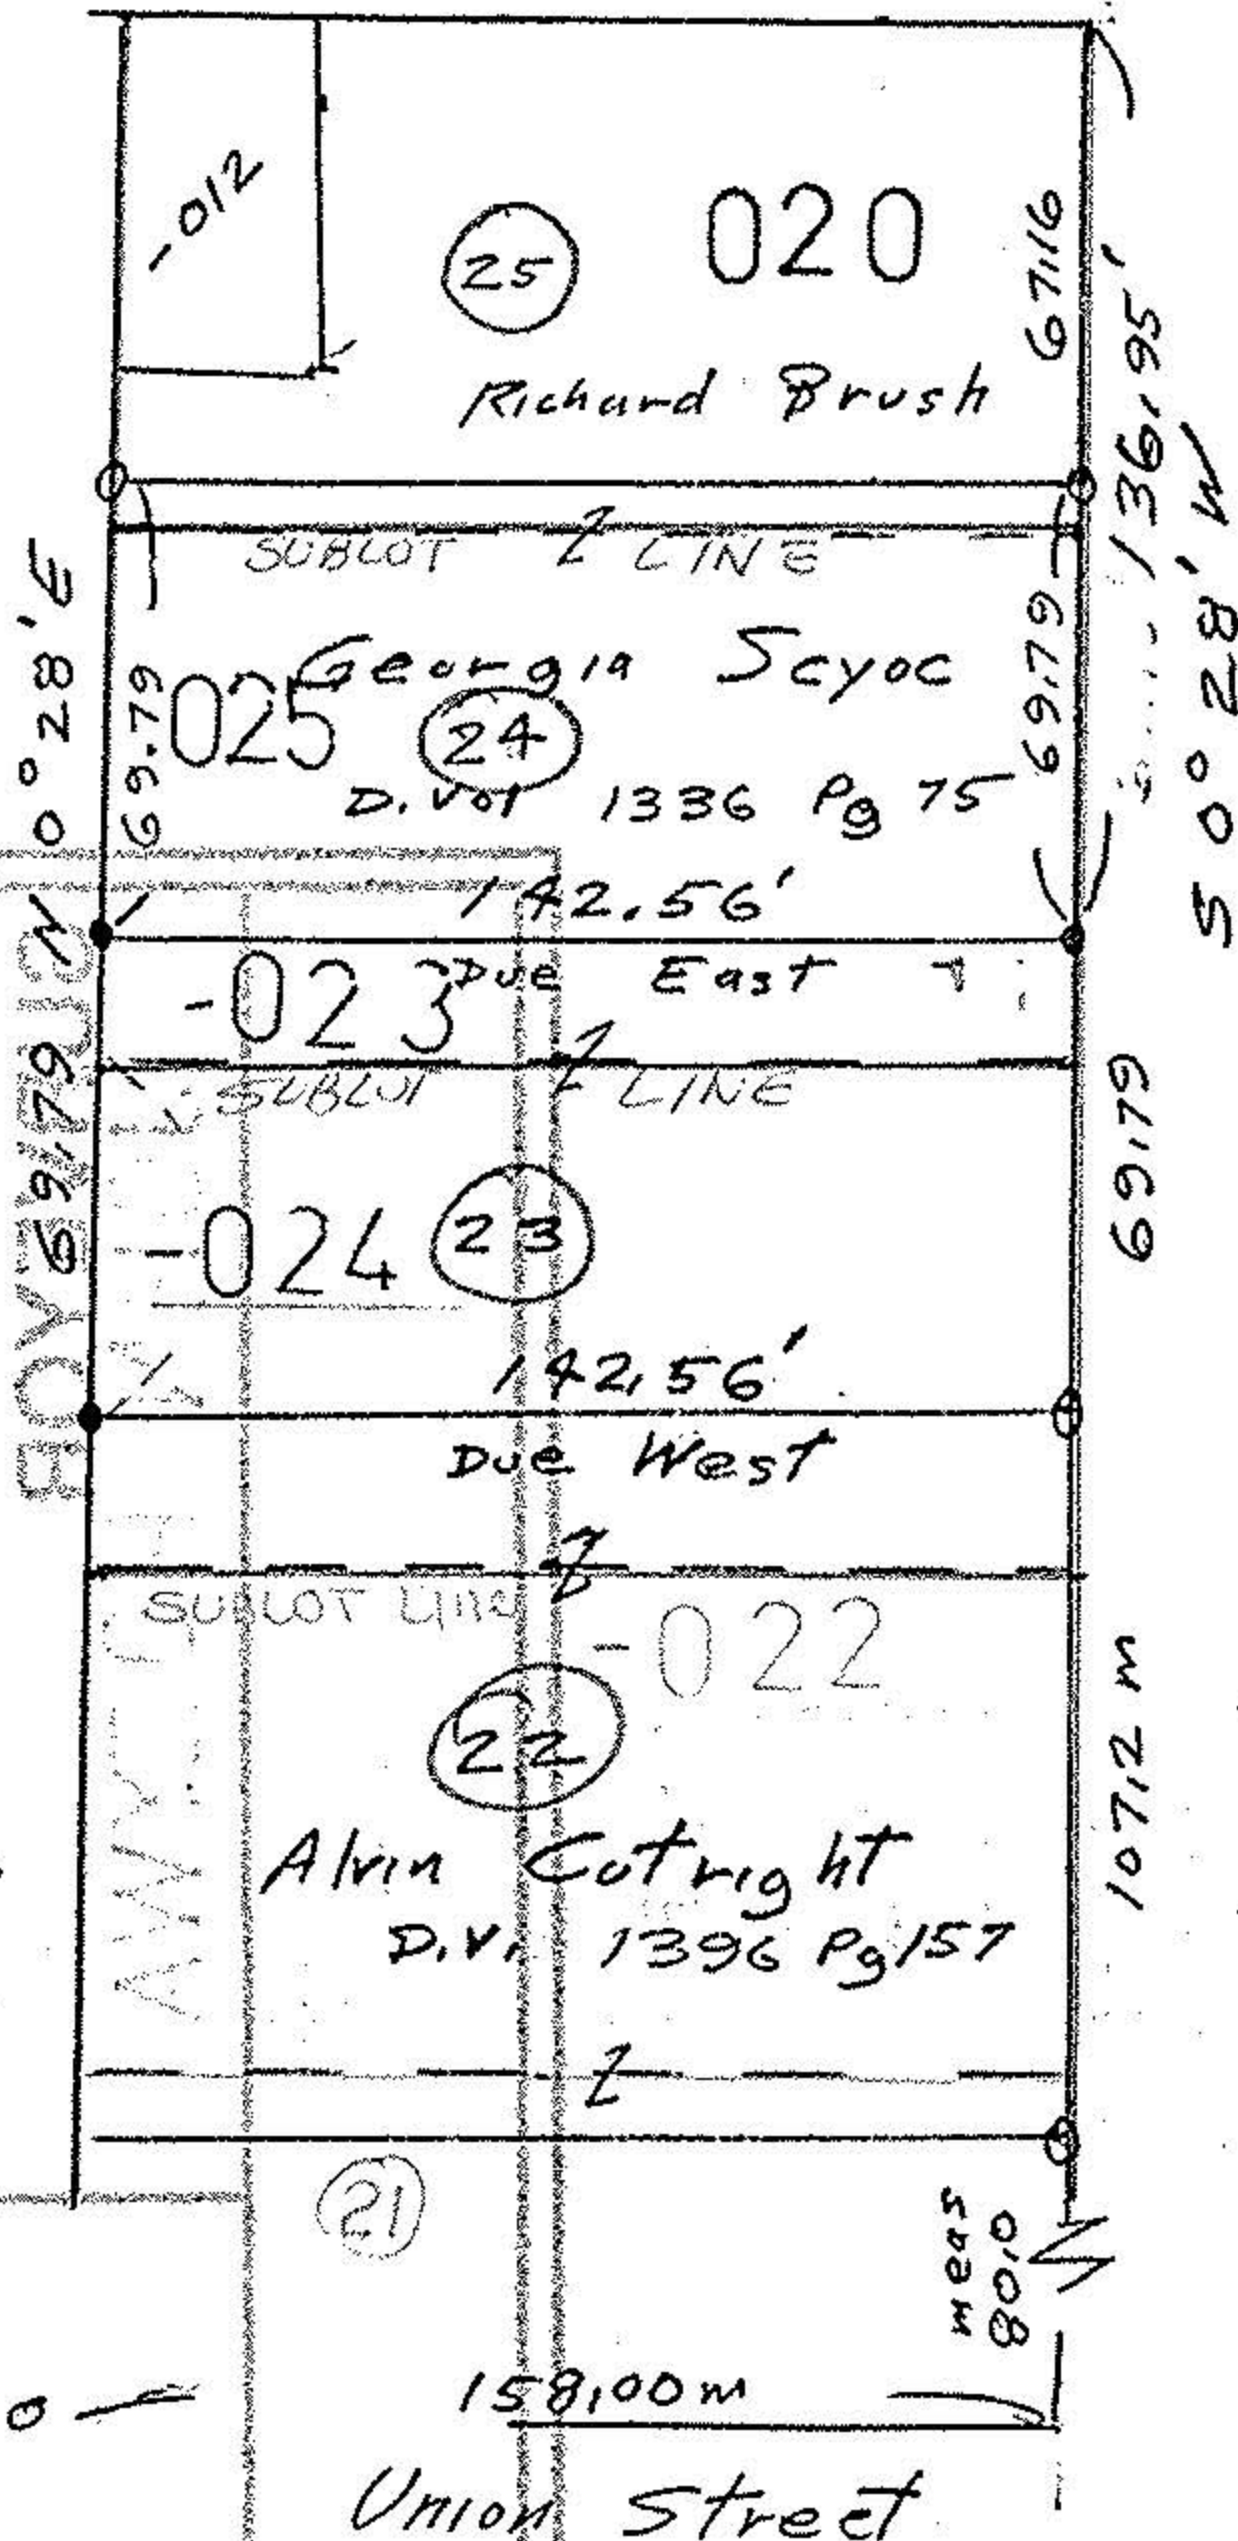 -012
25
020
67.16
Richard Brush
136.95'
S 0° 28' W
SUBLOT LINE
N 0° 28' E
69.79
Georgia Scyoc
69.79
025
24
D. Vol 1336 Pg 75
142.56'
Due East
-023
SUBLOT LINE
69.79
69.79
-024
23
142.56'
Due West
SUBLOT Line
-022
22
107.2 m
Alvin Cutright
D.V. 1396 Pg 157
21
meas
80.0
158.00 m
Union Street